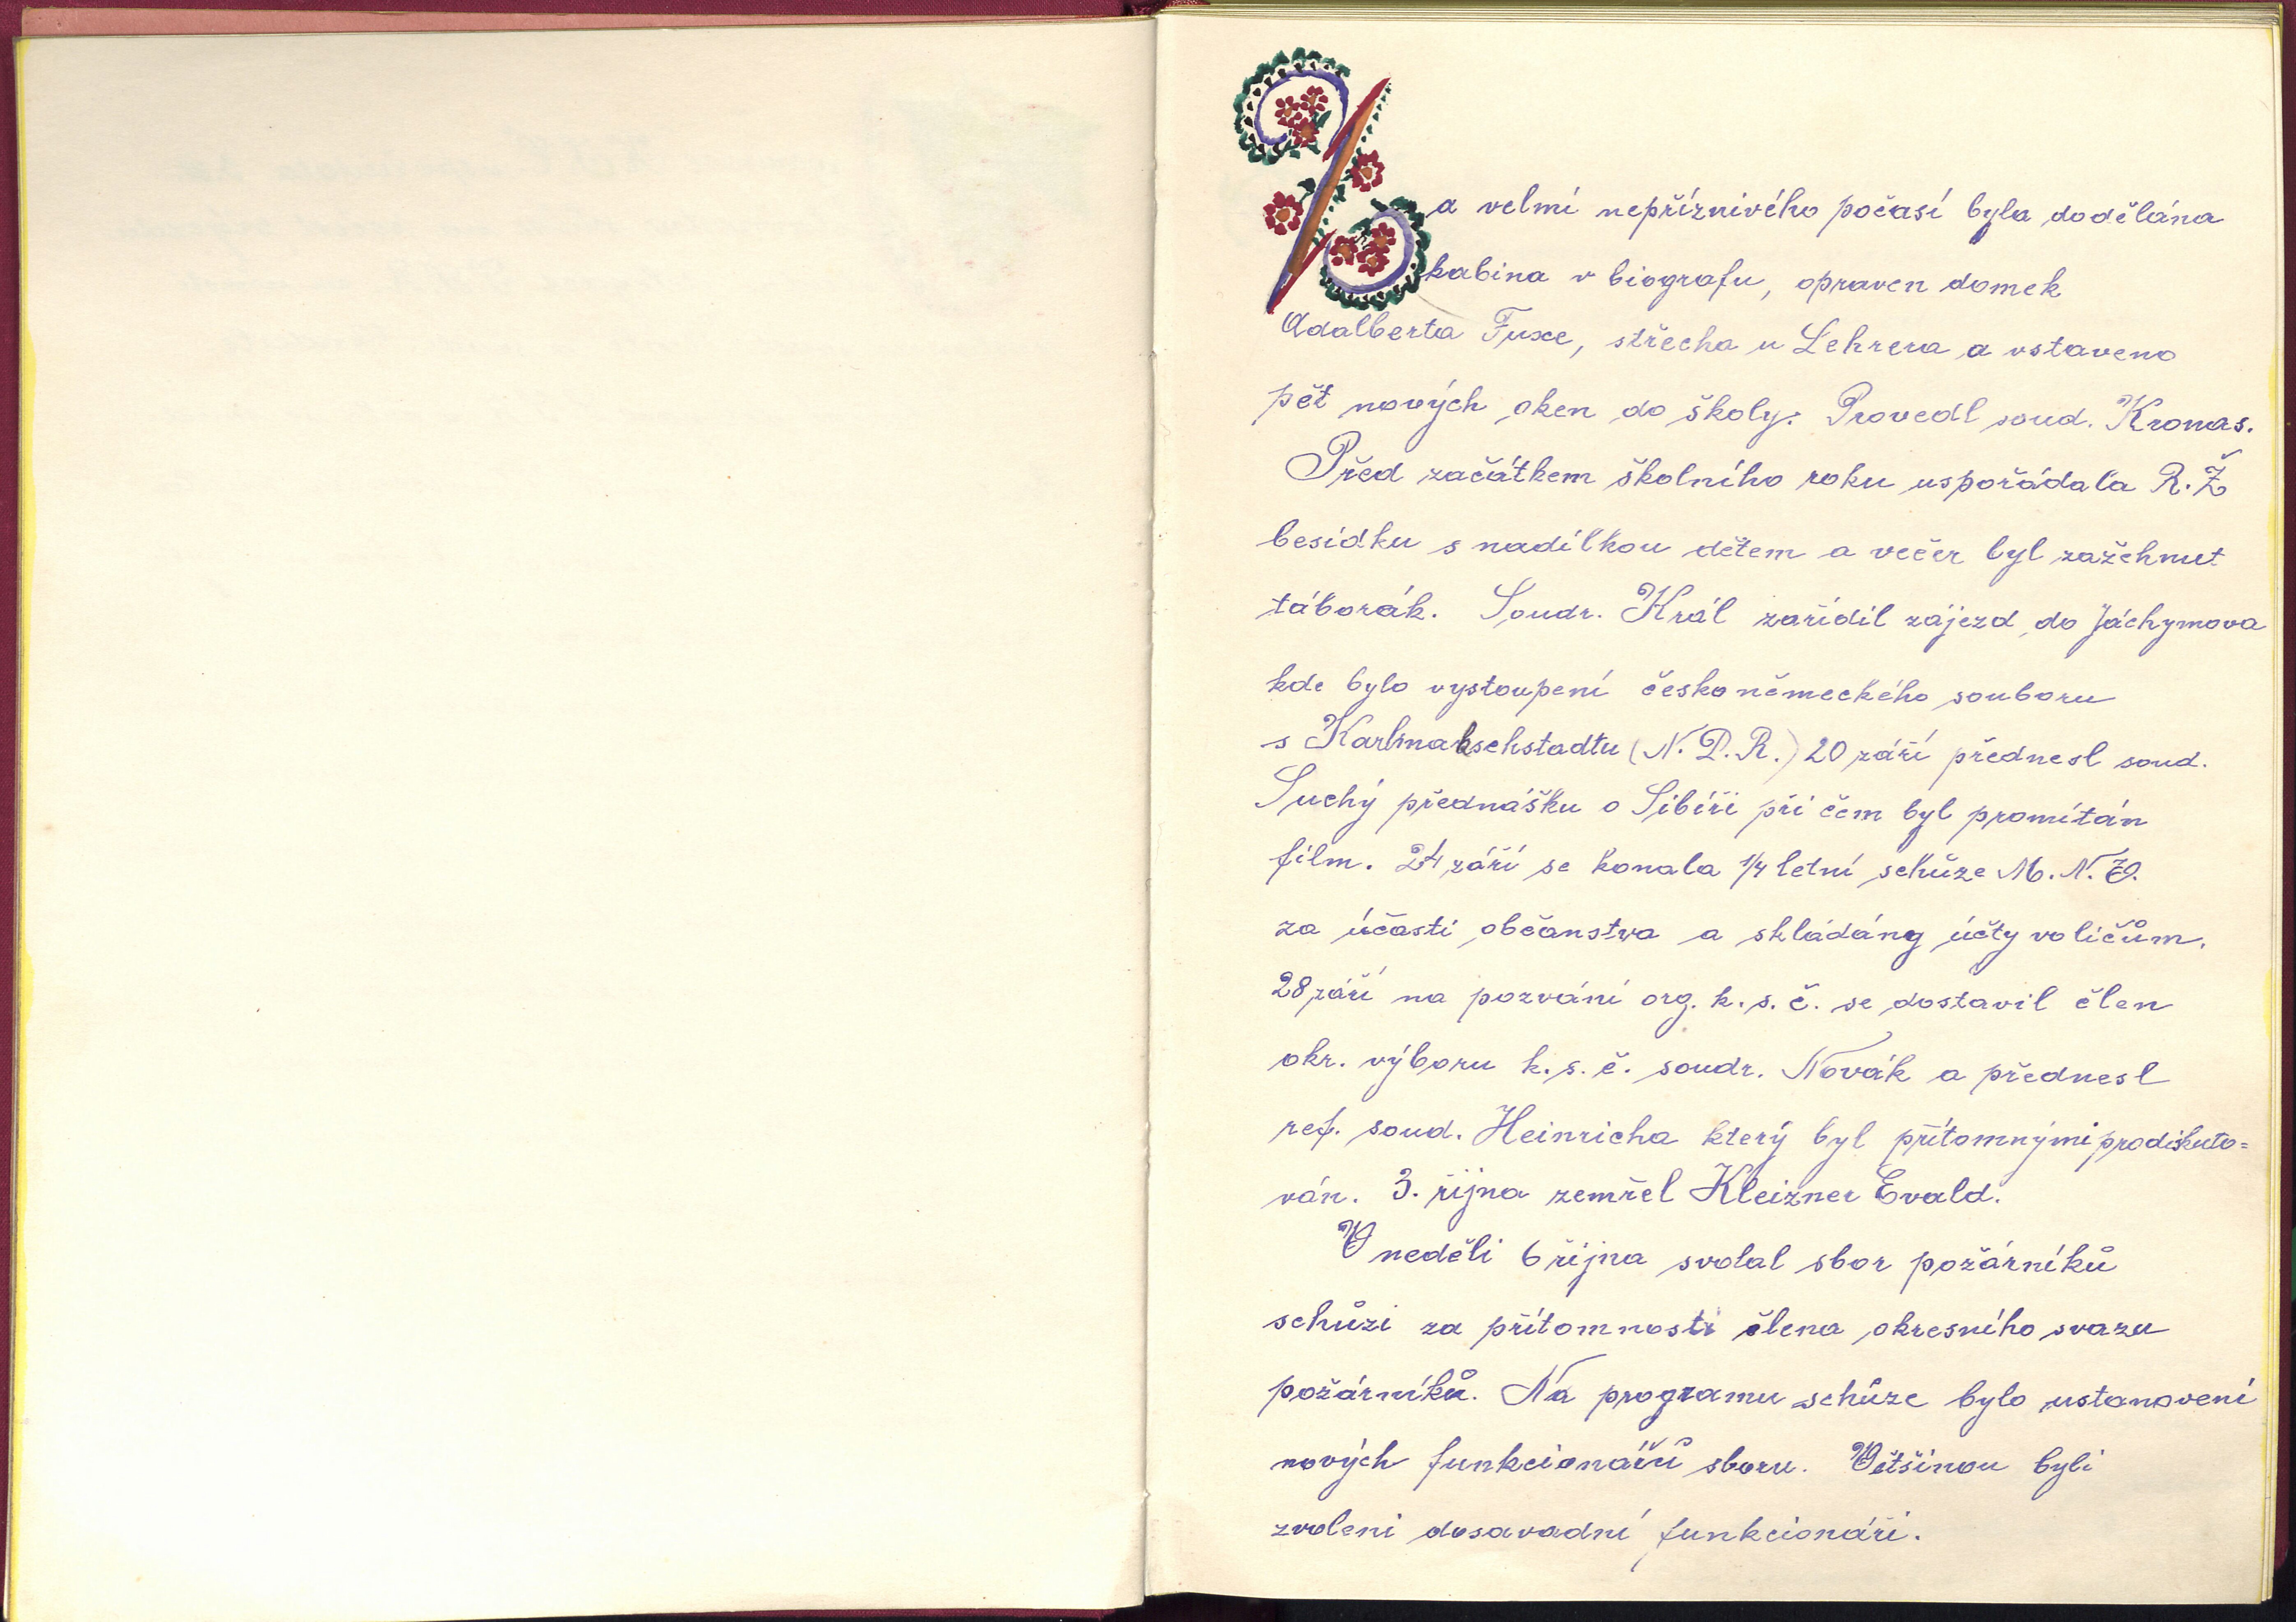 Za velmi nepříznivého počasí byla dodělána
kabina v biografu, opraven domek
Adalberta Fuxe, střecha u Lehrera a vstaveno
pět nových oken do školy. Provedl soud. Kronas.
Před začátkem školního roku uspořádala R.Ž
besídku s nadílkou dětem a večer byl zažehnut
táborák. Soudr. Král zařídil zájezd do Jáchymova
kde bylo vystoupení českoněmeckého souboru
s Karlmakschstadtu (N.D.R.) 20 září přednesl soud.
Suchý přednášku o Sibíři při čem byl promítán
film. 24 září se konala 1/4 letní schůze M.N.V.
za účasti občanstva a skládány účty voličům.
28 září na pozvání org. k.s.č. se dostavil člen
okr. výboru k.s.č. soudr. Novák a přednesl
ref. soud. Heinricha který byl přítomnými prodiskuto=
ván. 3. října zemřel Kleizner Evald.
V neděli 6 října svolal sbor požárníků
schůzi za přítomnosti člena okresního svazu
požárníků. Na programu schůze bylo ustanovení
nových funkcionářů sboru. Většinou byli
zvoleni dosavadní funkcionáři.